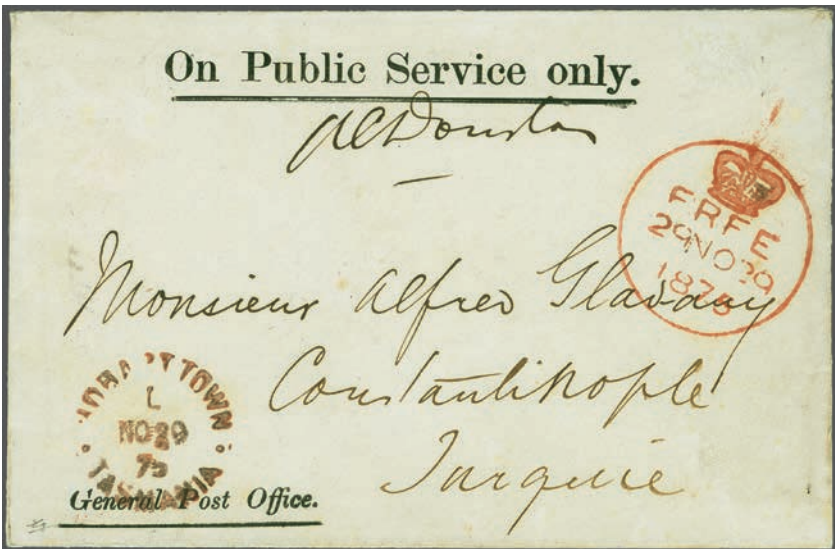 On Public Service only.
FREE
29 NO 29
1875
Monsieur Alfred Glavany
Constantinople
Turquie
HOBART TOWN
1
NO 29
75
TASMANIA
General Post Office.